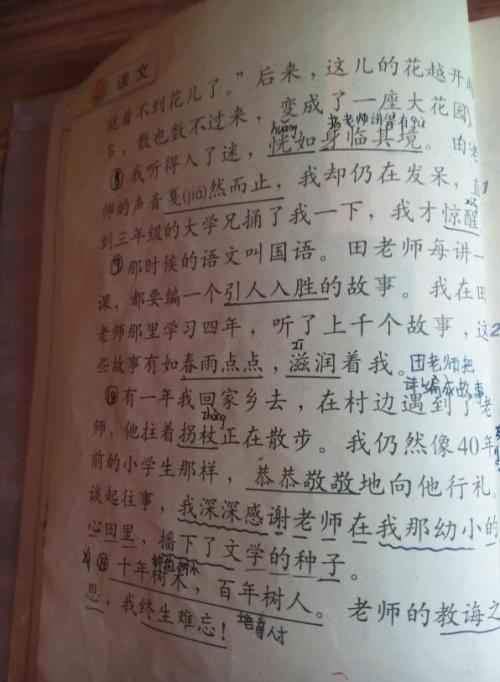 课文
说看不到花儿了。”后来，这儿的花越开越
多，数也数不过来，变成了一座大花园
huǎng 老师讲得有
⑧我听得入了迷，恍如身临其境。田老
师的声音戛(jiá)然而止，我却仍在发呆，直
到三年级的大学兄捅了我一下，我才惊醒
⑨那时候的语文叫国语。田老师每讲一
课，都要编一个引人入胜的故事。我在田
老师那里学习四年，听了上千个故事，这
些故事有如春雨点点，滋润着我。田老师把
课编成故事
⑩有一年我回家乡去，在村边遇到了老
zhàng
师，他拄着拐杖正在散步。我仍然像40年
前的小学生那样，恭恭敬敬地向他行礼，
谈起往事，我深深感谢老师在我那幼小的
心田里，播下了文学的种子。
十年树木，百年树人。老师的教诲之
恩，我终生难忘！培育人才